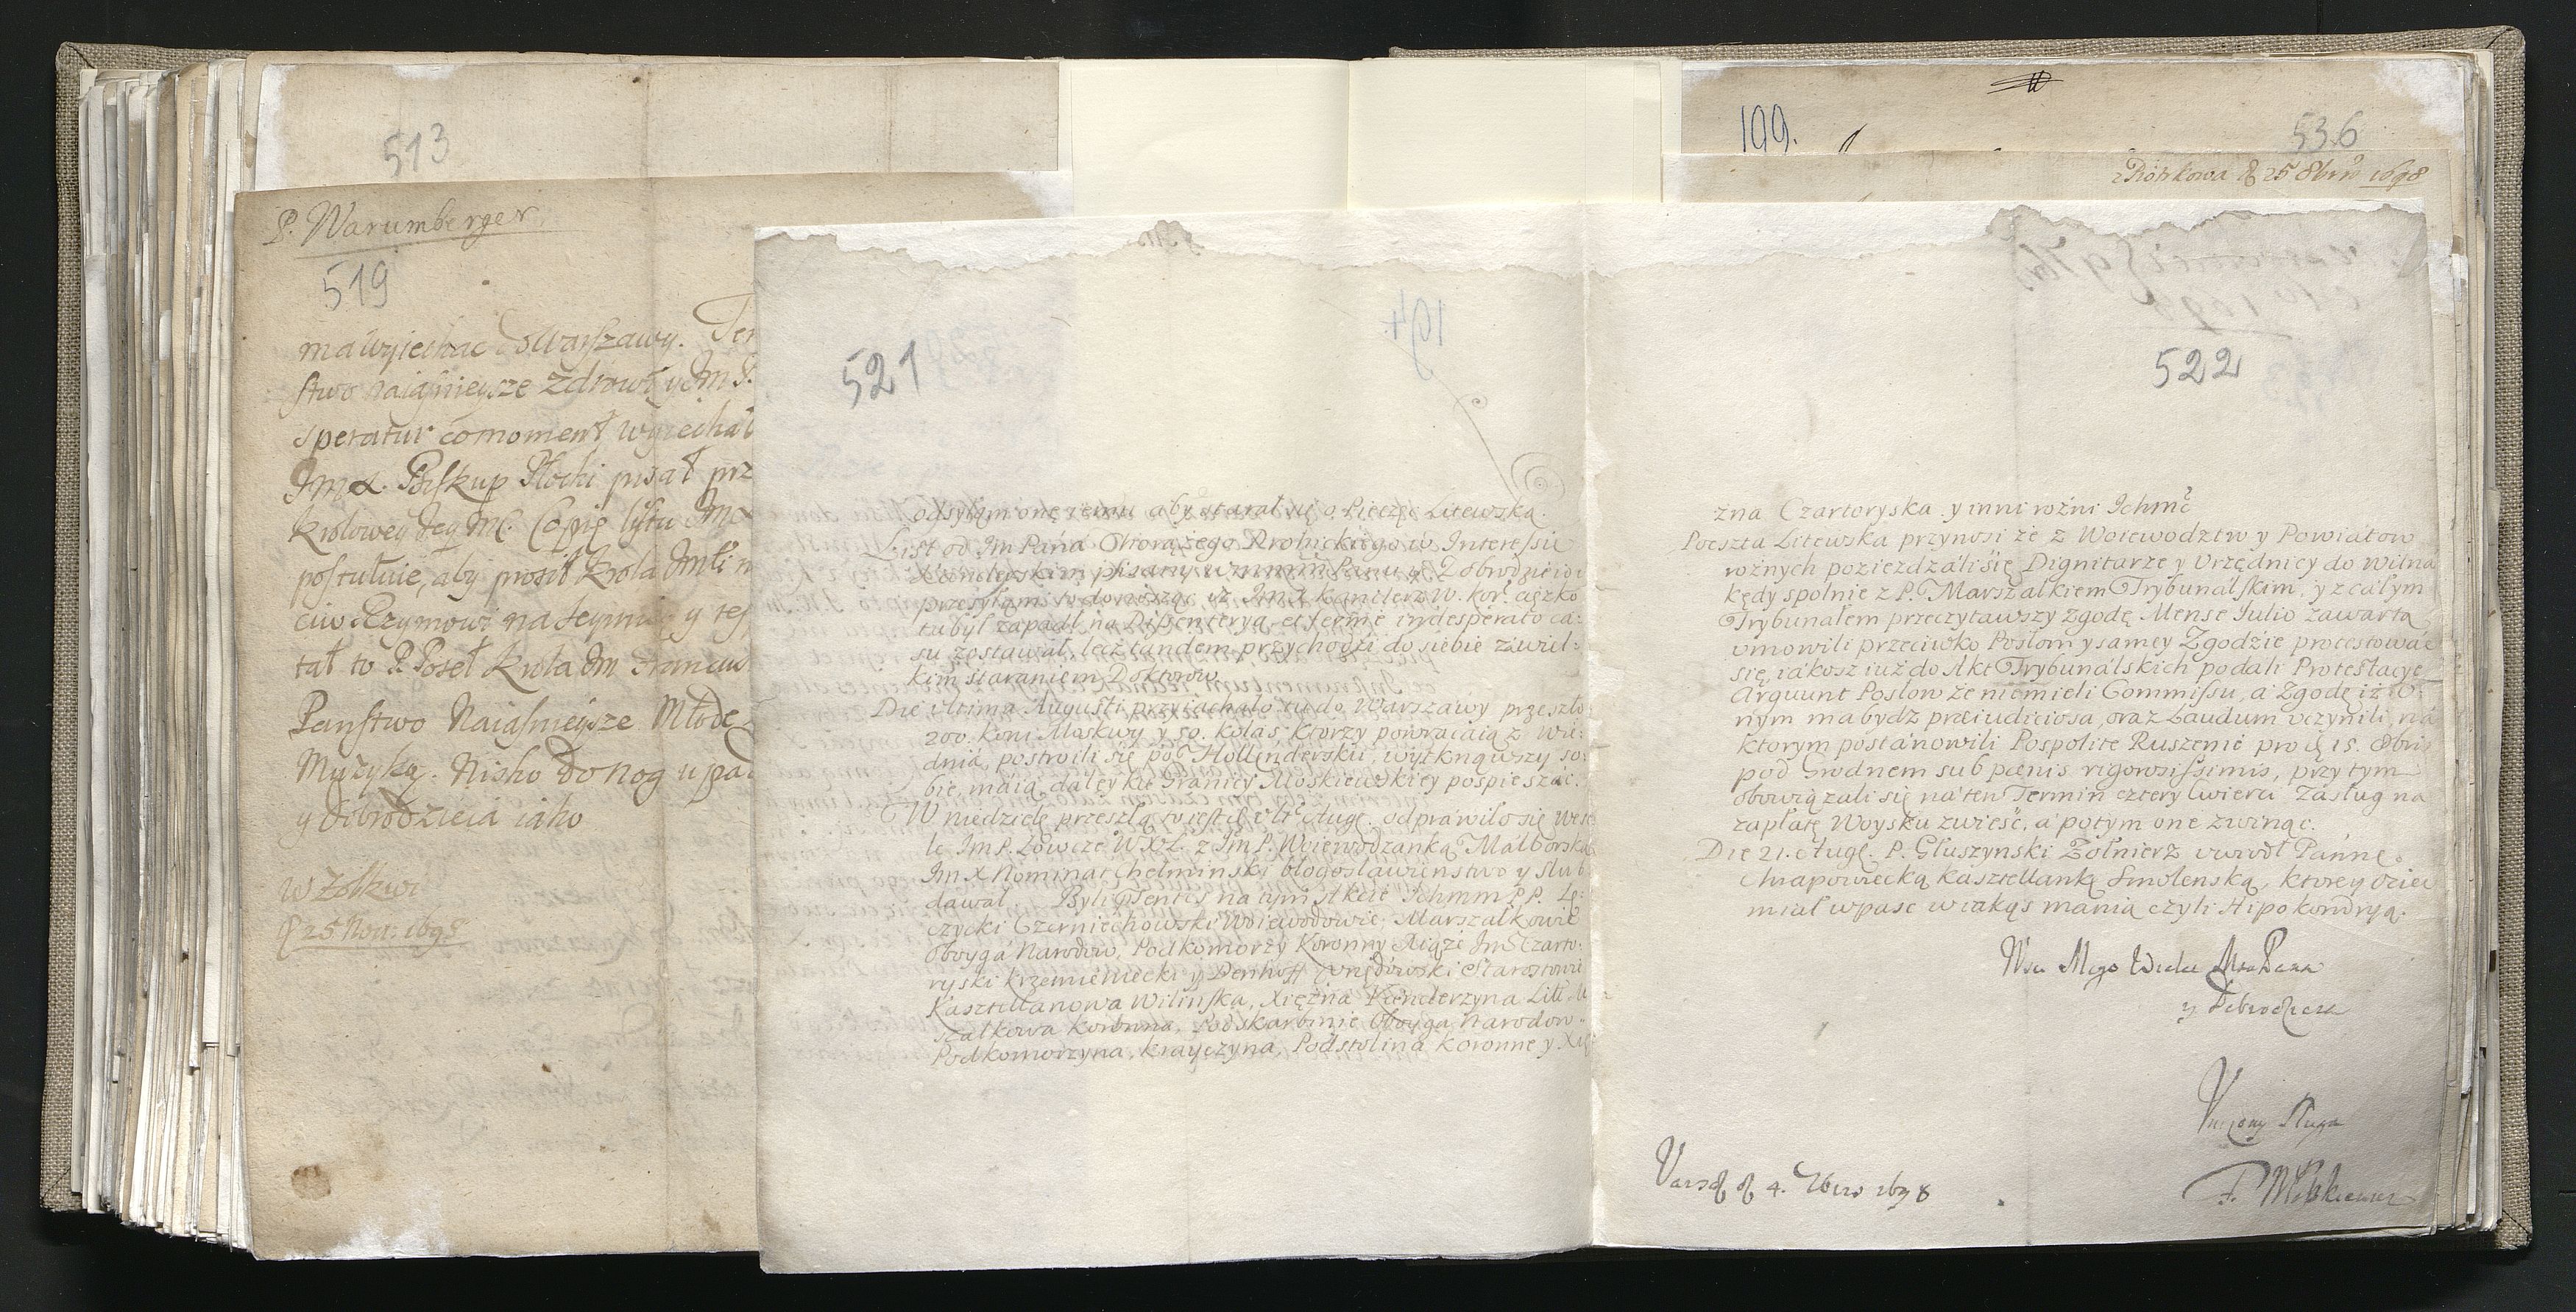 513
P. Warumberger
519
ma wyiechac do Warszawy. Ter
stwo naiasnieysze zdrowi y Jm P.
speratur co moment wyiechał
Jmx. Biskup Płocki pisał prz
krolowey Jey Mć. Copię listu Jmx
postuluie, aby prosił Krola Jmści n
na Seymie y tes
tał to P. Poseł Krola Jm Francus
Panstwo Naiasnieysze Młode
Muzyką. Nisko do nog upad
y Dibrodzieia iako
w Zołkwi
25. Nov: 1698
521
194.
odsyłam onę iemu aby starał się o Pieczęc Litewską.
List od Jm Pana Chorążego w Interessie
pisany
przesyłam to donosząc iz JmX Kanclerz W. Kor. cięzko
tu był zapadł na Dissenteryą, et ferme in desperato ca:
su zostawał, lecz tandem przychodzi do siebie z wiel:
kim staraniem Doktorow.
Die ultima Augusti przyiachało tu do Warszawy przeszło
200. koni Moskwy y 50. kolas, ktorzy powracaią z Wie:
dnia, postroili się po Hollendersku, wytknąwszy so:
bie, maią daley ku Granicy Moskiewskiey pospieszac.
W niedzielę przeszłą to iest Aug. odprawiło się wese
le Jm P. Łowcze WXL. z Jm P. Woiewodzanką Malborską
Jm X Nominat Chełminski błogosławienstwo y slub
dawał. Byli na tym Akcie Ichmm PP. Lę:
czycki Czerniechowski Woiewodowie, Marszałkowie
oboyga Narodow, Podkomorzy Koronny Xiąże Jmć Czarto:
ryski Krzemieniecki y Denhoff Starostowie
Kasztellanowa Wilinska, Xiężna Kanclerzyna Litt. M
szałkowa koronna, Podskarbinie oboyga Narodow.
Podkomorzyna, Krayczyna, Podstolina koronne y Xię
199.
536
z Piotrkowa d 25 8bris 1698
522
zna Czartoryska y inni rożni Ichmć
Poczta Litewska przynosi że z Woiewodztw y Powiatow
rożnych poziezdzali się Dignitarze y Urzędnicy do Wilna
kędy spolnie z P. Marszałkiem Trybunalskim, y z całym
Trybunałem przeczytawszy zgodę Mense Julio zawartą
umowili przeciwko Posłom y samey Zgodzie protestowac
się, iakosz iuż do Akt Trybunalskich podali Protestacyę
Arguunt Posłow że niemieli Commissu, a Zgodę iż
nym ma bydz praeiudiciosa, oraz Laudum uczynili, na
ktorym postanowili Pospolite Ruszenie pro 15. 8bris
pod Grodnem sub paenis rigorosissimis, przy tym
obowiązali się na ten Termin cztery cwierci zasług na
zapłatę Woysku zwieść, a potym one zwinąc.
Die 21. Aug. P. Głuszynski Żołnierz uwiodł Pannę
Chrapowiecką Kasztellankę Smolenską, ktorey dzien
miał wpasc w iakąs manią czyli Hipokondryą.
Wm Mego Wielce Mśco Pana
y Dobrodzieia
Unizony Sługa
Vars d 4. 7bris 1698